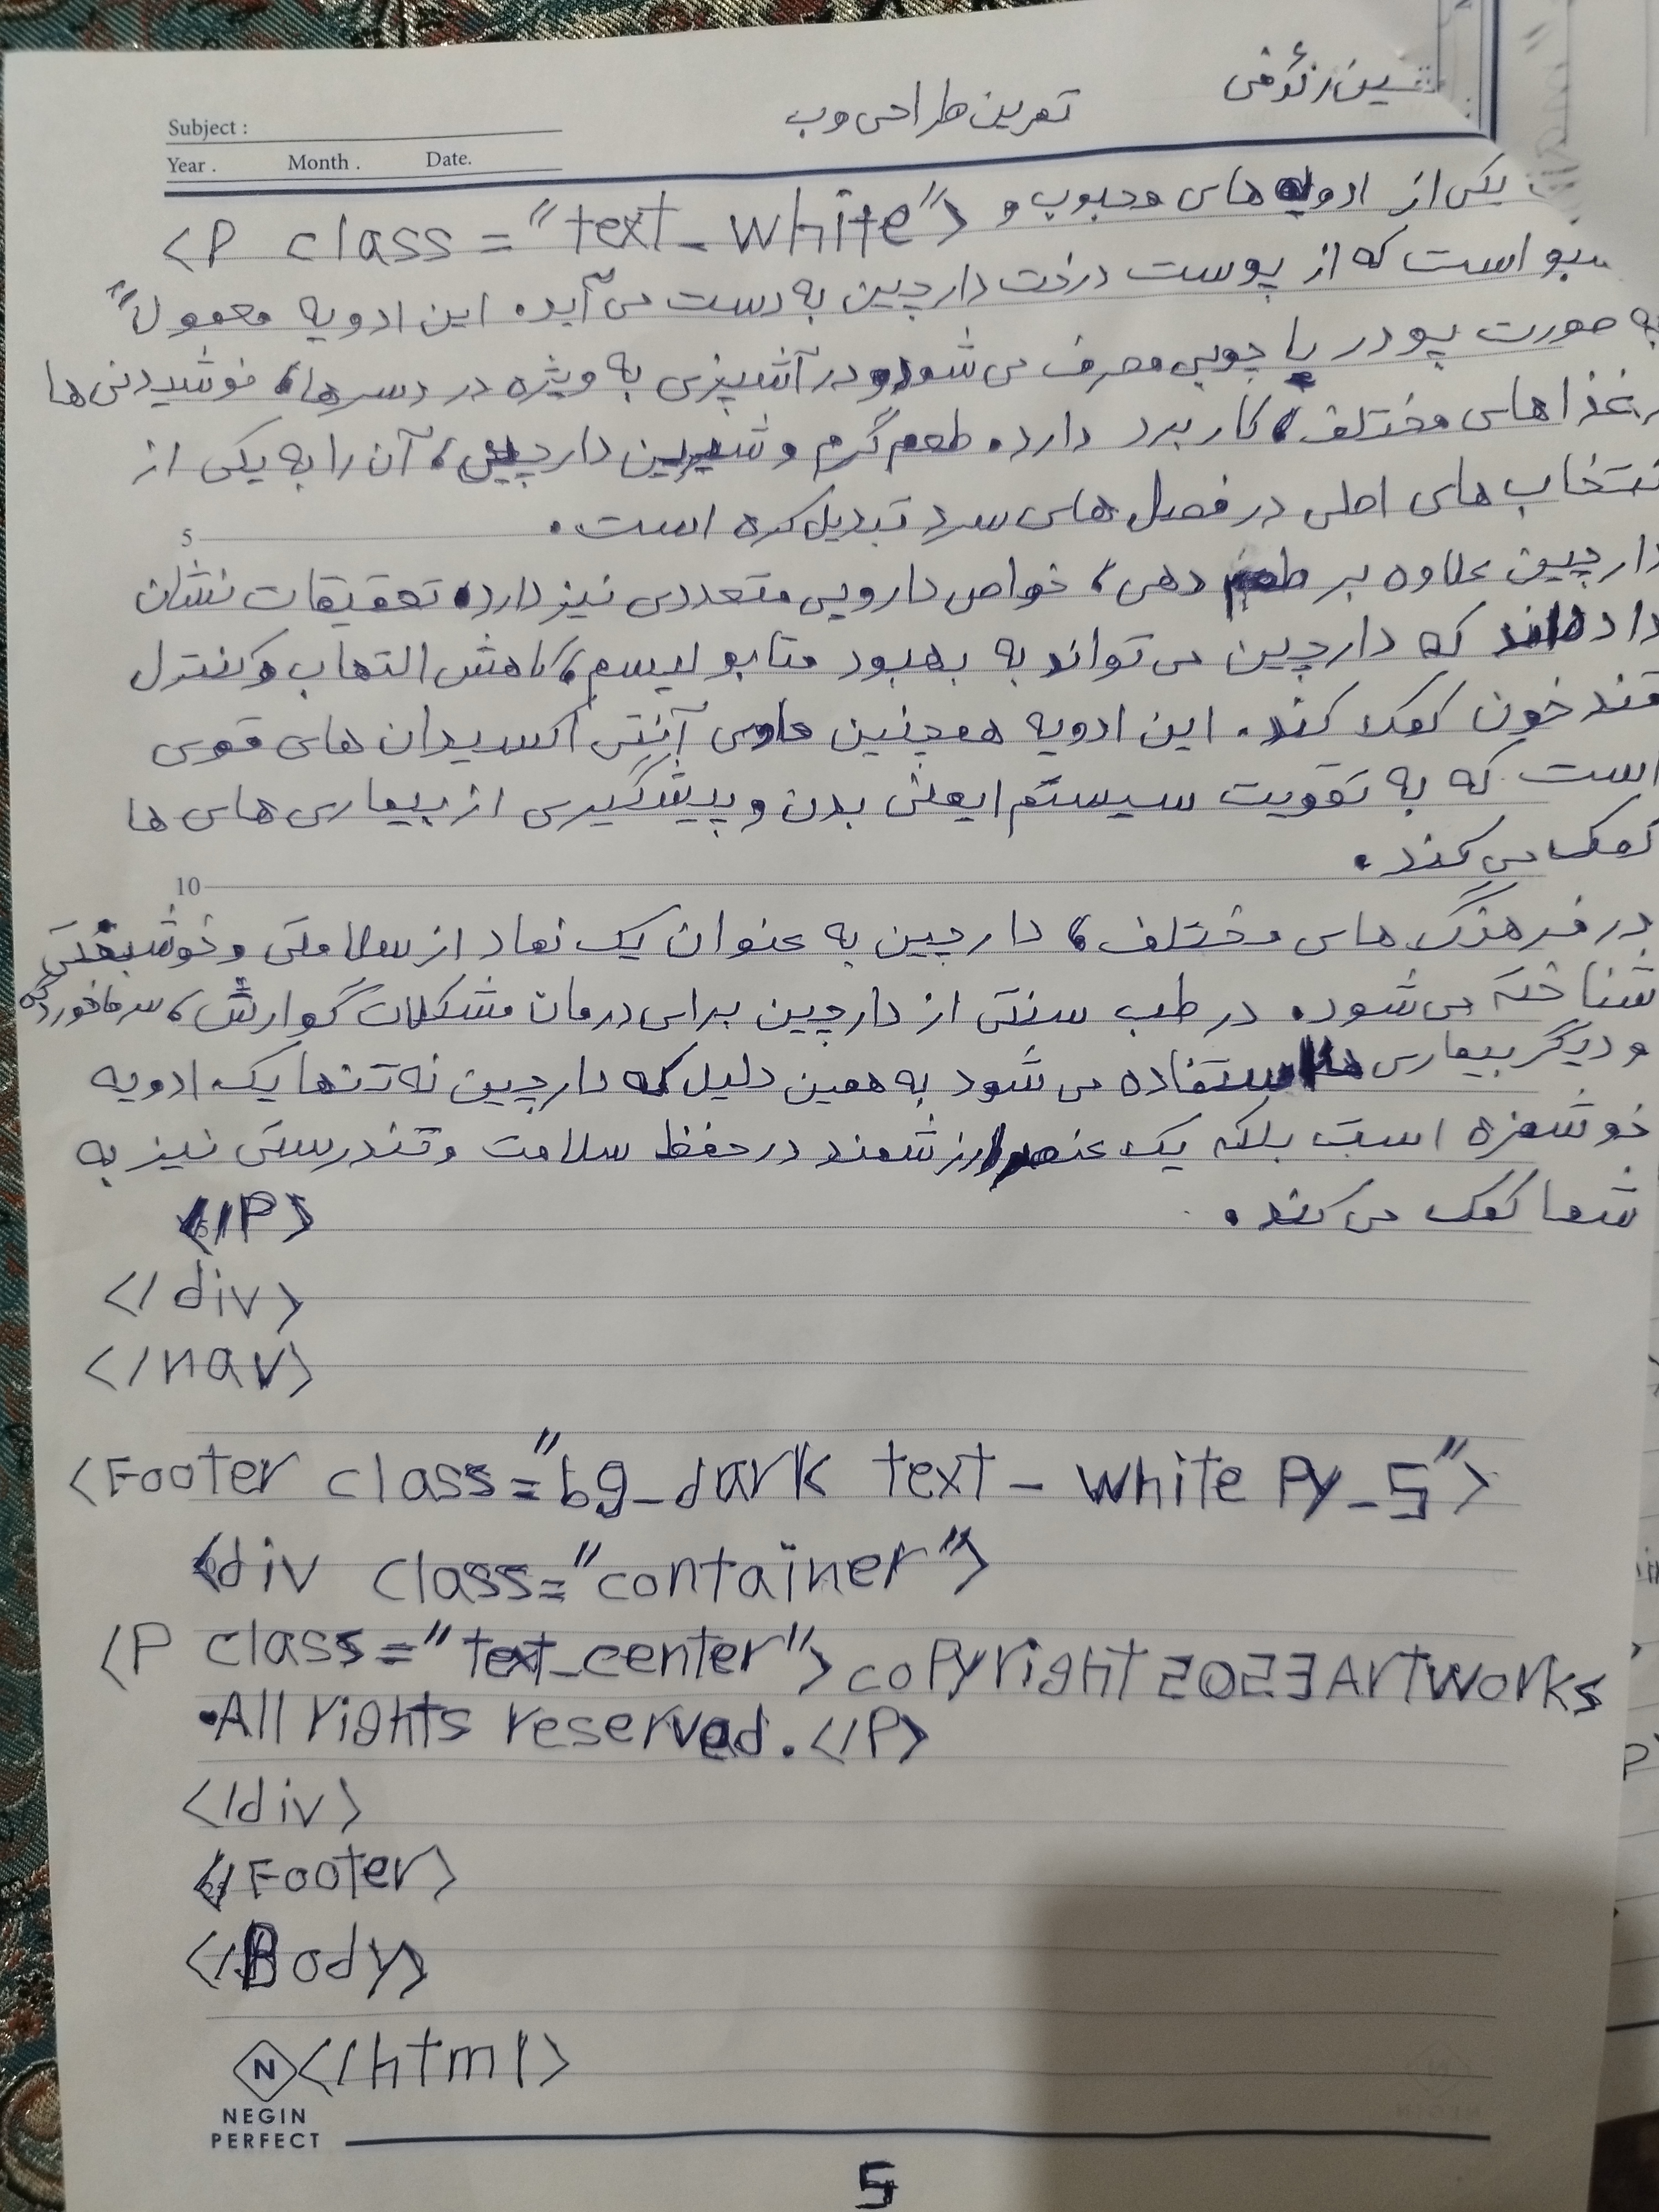 تمرین طراحی وب
Subject :
Year . Month . Date.
<P class="text_white"> یکی از ادویه های محبوب و
است که از پوست درخت دارچین به دست می آید. این ادویه معمولاً
به صورت پودر یا چوبی مصرف می شود و در آشپزی به ویژه در دسرها، نوشیدنی ها
غذاهای مختلف، کاربرد دارد. طعم گرم و شیرین دارچین، آن را به یکی از
نتخاب های اصلی در فصل های سرد تبدیل کرده است.
5
دارچین علاوه بر طعم دهی، خواص دارویی متعددی نیز دارد. تحقیقات نشان
داده اند که دارچین می تواند به بهبود متابولیسم، کاهش التهاب و کنترل
قند خون کمک کند. این ادویه همچنین حاوی آنتی اکسیدان های قوی
است که به تقویت سیستم ایمنی بدن و پیشگیری از بیماری های ها
کمک می کند.
10
در فرهنگ های مختلف، دارچین به عنوان یک نماد از سلامتی و خوشبختی
شناخته می شود. در طب سنتی از دارچین برای درمان مشکلات گوارش، سرماخوردگی
و دیگر بیماری ها استفاده می شود به همین دلیل که دارچین نه تنها یک ادویه
خوشمزه است بلکه یک عنصر ارزشمند در حفظ سلامت و تندرستی نیز به
شما کمک می کند.
</P>
</div>
</nav>
<Footer class="bg_dark text - white Py_5">
<div class="container">
<P class="text_center">copyright 2023 Artworks
.All rights reserved.</P>
</div>
</Footer>
</Body>
</html>
N
NEGIN
PERFECT
5